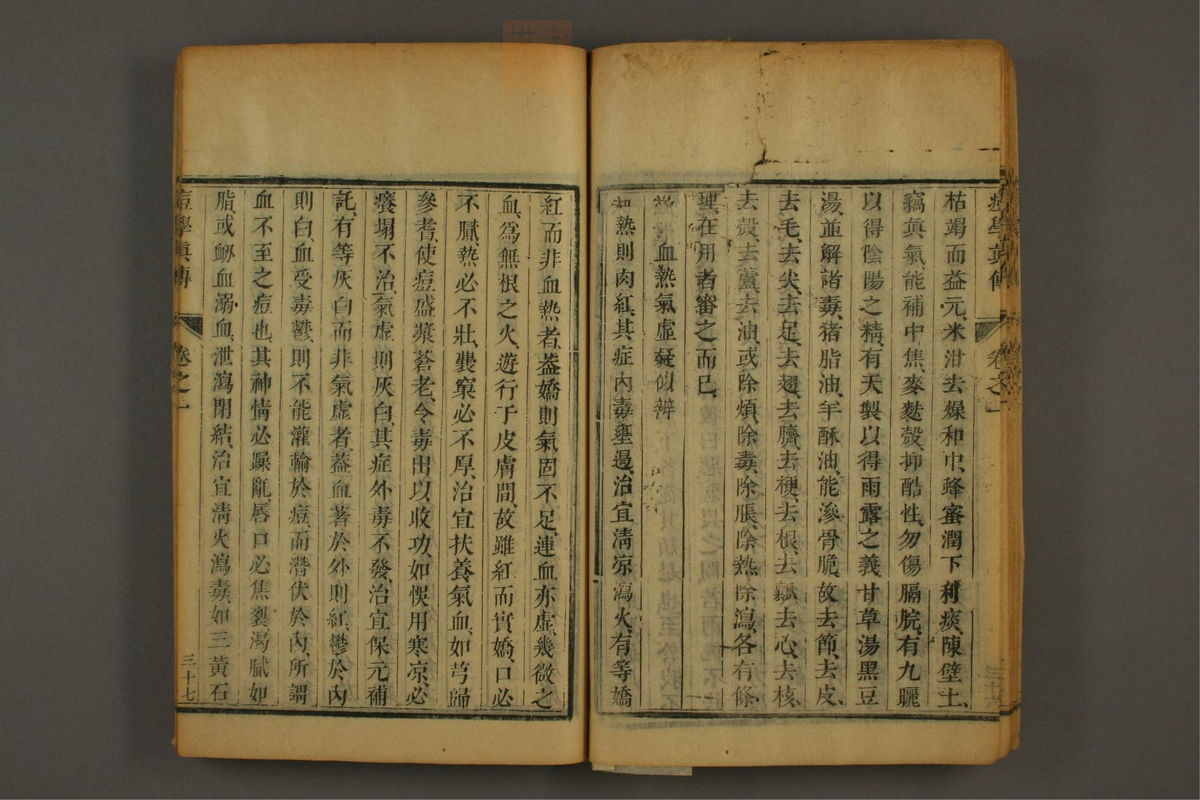 痘學眞傳 卷之一
枯竭而益元、米泔去燥和中、蜂蜜潤下利痰、陳壁土、
竊眞氣能補中焦、麥麩殼抑酷性、勿傷膈脘、有九曬
以得陰陽之精、有天製以得雨露之義、甘草湯黑豆
湯、並解諸毒、猪脂油、羊酥油、能滲骨脆、故去節、去皮、
去毛、去尖、去足、去翅、去臍、去梗、去根、去瓤、去心、去核、
去殼、去蘆、去油、或除煩、除毒、除脹、除熱、除瀉、各有條
理、在用者審之而已、
血熱氣虛疑似辨
熱則肉紅、其症內毒壅遏、治宜清凉瀉火、有等嬌
紅而非血熱者、葢嬌則氣固不足、連血亦虛、幾微之
血、爲無根之火、遊行于皮膚間、故雖紅而實嬌、口必
不膩、熱必不壯、裏窠必不厚、治宜扶養氣血、如芎歸
參耆、使痘盛漿蒼老、令毒出以收功、如悞用寒凉、必
癢塌不治、氣虛則灰白、其症外毒不發、治宜保元補
託、有等灰白而非氣虛者、葢血著於外則紅、鬱於內
則白、血受毒鬱、則不能灌輸於痘、而潛伏於內、所謂
血不至之痘也、其神情必躁亂、唇口必焦裂渴膩、如
脂、或衂血溺血、泄瀉閉結、治宜清火瀉毒、如三黃石
痘學眞傳 卷之一 三十七